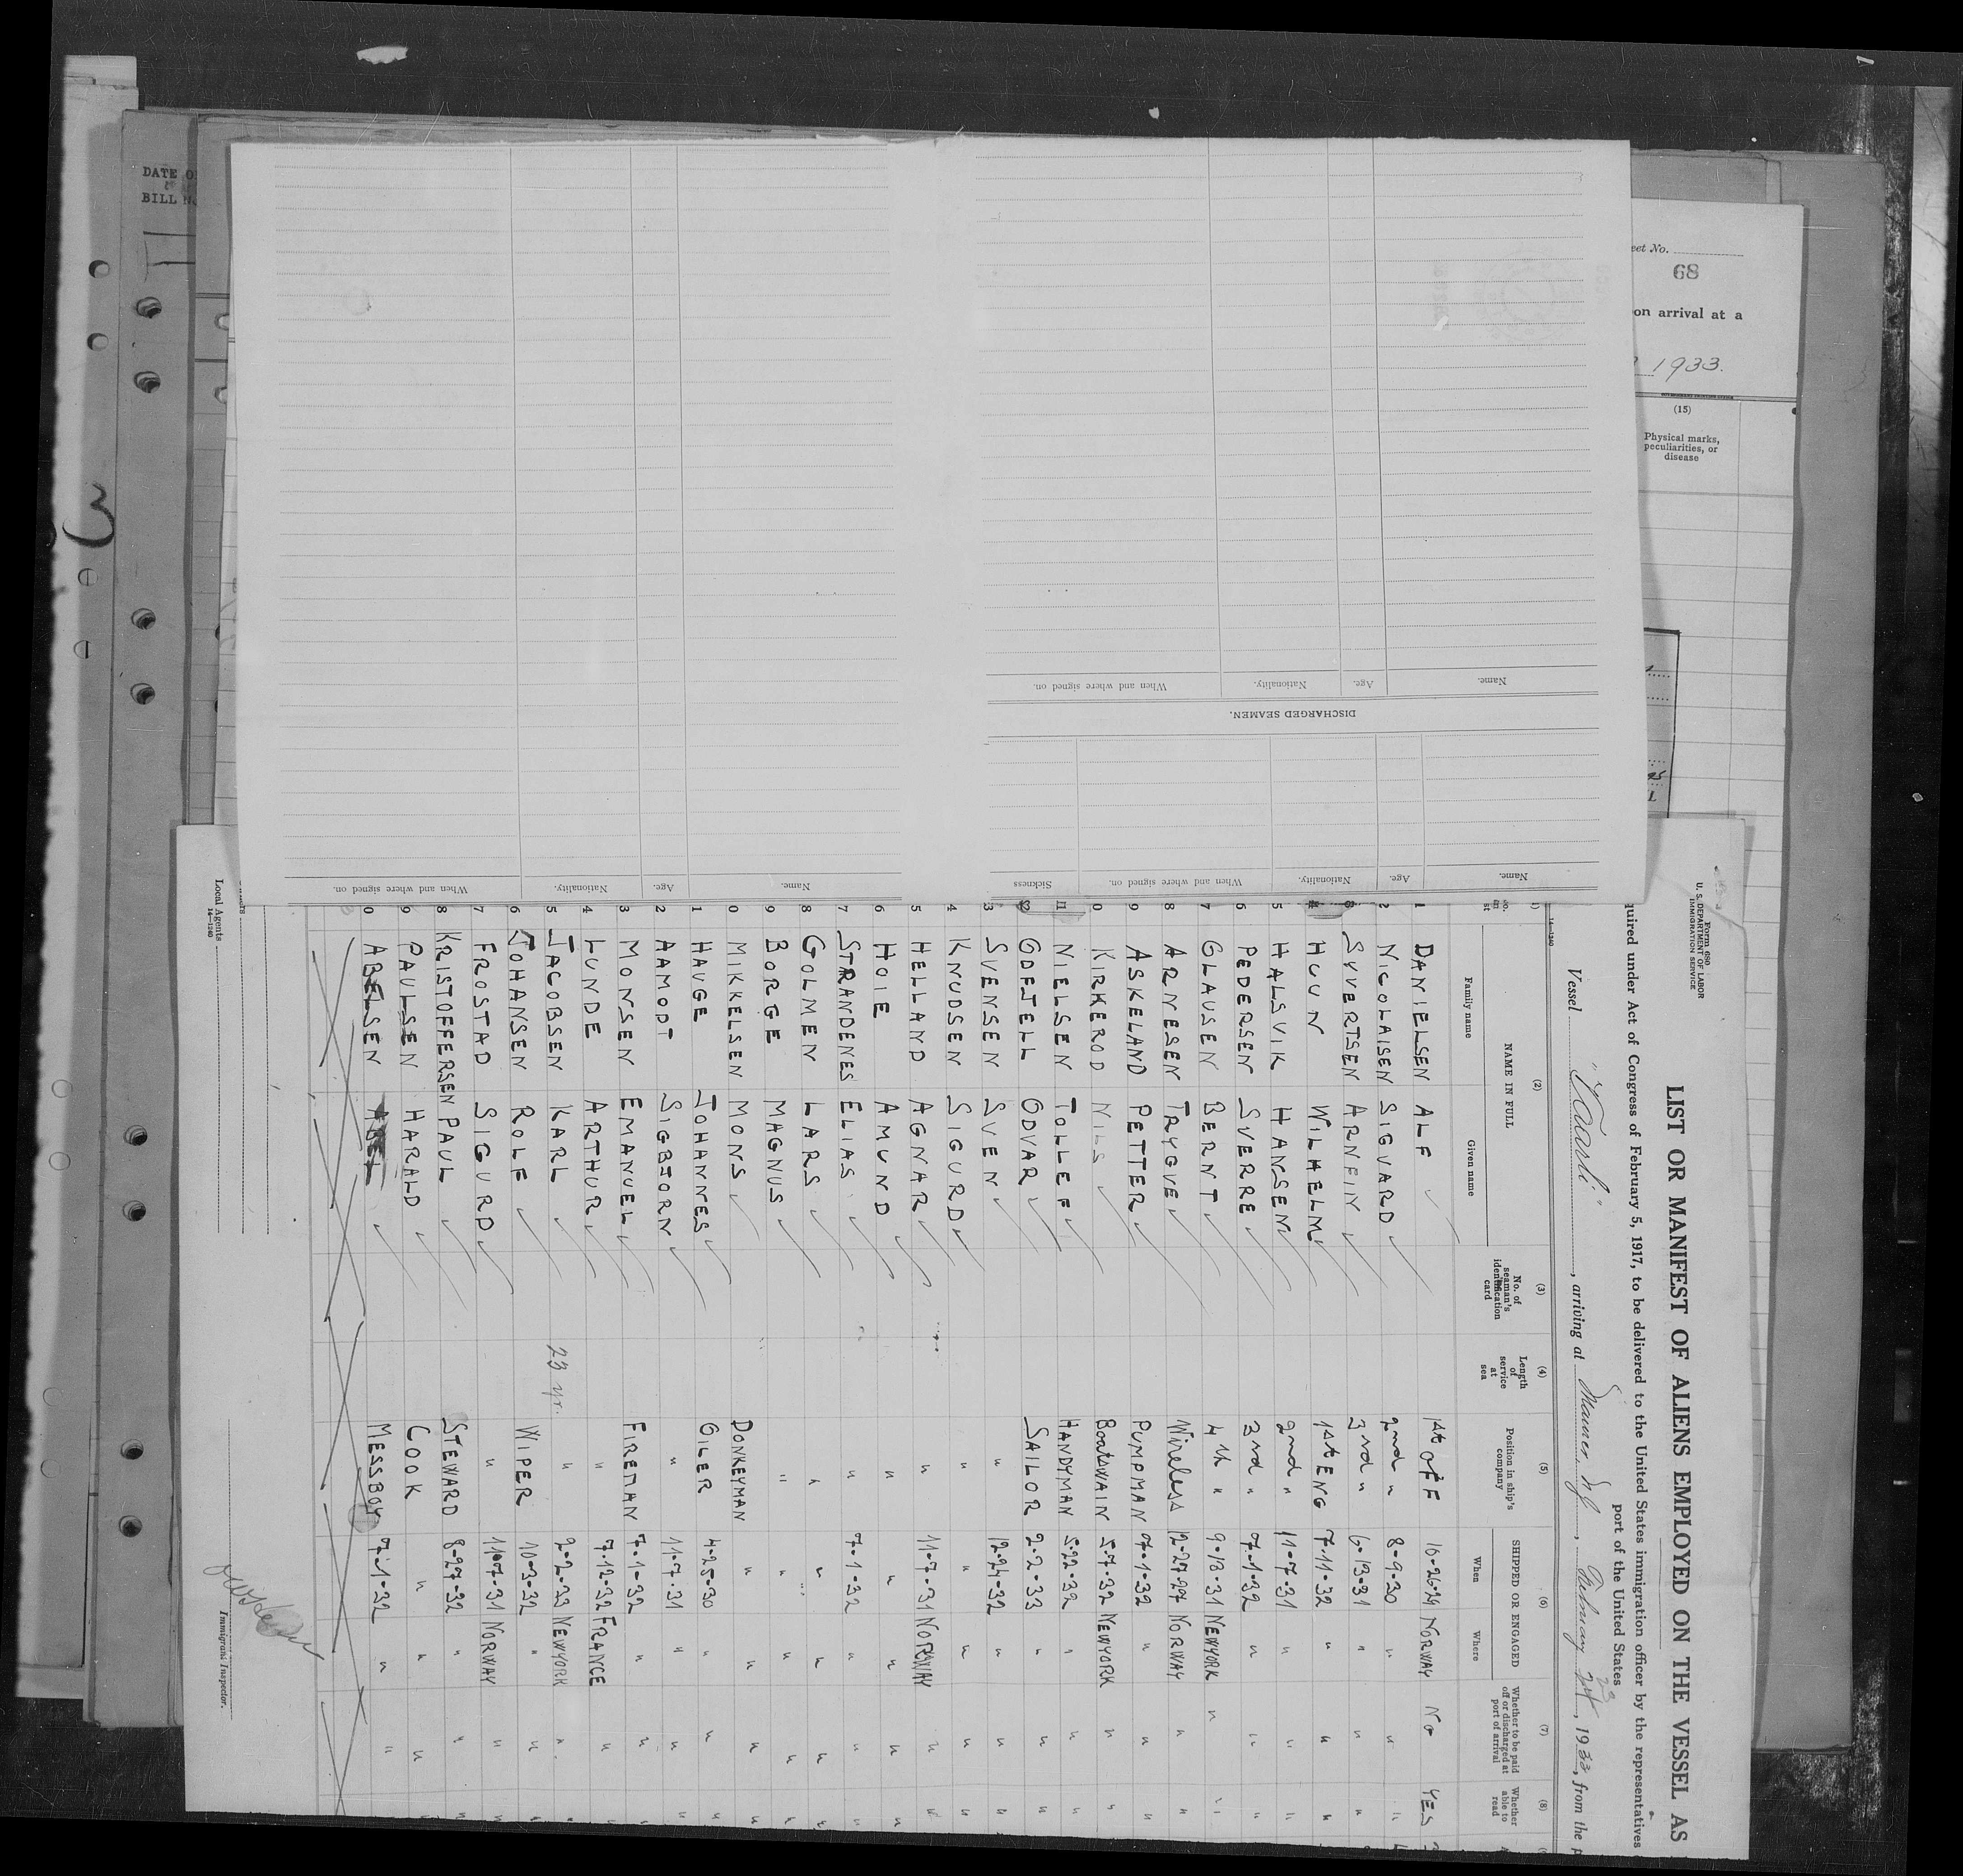 DATE O
BILL N
3
eet No.
68
on arrival at a
1933.
(15)
Physical marks,
peculiarities, or
disease
Name. Age. Nationality. When and where signed on.
DISCHARGED SEAMEN.
Name. Age. Nationality. When and where signed on. Sickness
Name. Age. Nationality. When and where signed on.
Form 680
U. S. DEPARTMENT OF LABOR
IMMIGRATION SERVICE
LIST OR MANIFEST OF ALIENS EMPLOYED ON THE VESSEL AS
quired under Act of Congress of February 5, 1917, to be delivered to the United States immigration officer by the representatives
port of the United States
Vessel , arriving at , 1933, from the p
14-1240
(2) (3) (4) (5) (6) (7) (8)
NAME IN FULL
Family name Given name
No. of seaman's identification card
Length of service at sea
Position in ship's company
SHIPPED OR ENGAGED
When Where
Whether to be paid off or discharged at port of arrival
Whether able to read
1 DANIELSEN ALF 1st OFF 10-26-29 NORWAY NO YES
2 NICOLAISEN SIGVARD 2nd " 8-9-30 " " "
3 SYVERTSEN ARNFIN 3rd " 6-13-31 " " "
4 HUUN WILHELM 1st ENG 7-11-32 " " "
5 HALSVIK HANSEN 2nd " 11-7-31 " " "
6 PEDERSEN SVERRE 3rd " 07-1-32 " " "
7 CLAUSEN BERNT 4th " 9-13-31 NEWYORK " "
8 ARNESEN TRYGVE Wireless 12-27-27 NORWAY " "
9 ASKELAND PETTER PUMPMAN 07-1-32 " " "
0 KIRKEROD NILS Boatswain 5-7-32 NEWYORK " "
11 NIELSEN TOLLEF HANDYMAN 5-22-32 " " "
12 ODFJELL ODVAR SAILOR 2-2-33 " " "
3 SVENSEN SVEN " 12-24-32 " " "
4 KNUDSEN SIGURD " " " " "
5 HELLAND AGNAR " 11-7-31 NORWAY " "
6 HOIE AMUND " " " " "
7 STRANDENES ELIAS " 7-1-32 " " "
8 GOLMEN LARS " " " " "
9 BORGE MAGNUS " " " " "
0 MIKKELSEN MONS DONKEYMAN " " " "
1 HAUGE JOHANNES OILER 4-25-30 " " "
2 AAMODT SIGBJORN " 11-7-31 " " "
3 MONSEN EMANUEL FIREMAN 7-1-32 " " "
4 LUNDE ARTHUR " 7-12-32 FRANCE " "
5 JACOBSEN KARL 23 yr. " 2-2-33 NEWYORK " "
6 JOHANSEN ROLF WIPER 10-3-32 " " "
7 FROSTAD SIGURD " 11-7-31 NORWAY " "
8 KRISTOFFERSEN PAUL STEWARD 8-27-32 " " "
9 PAULSEN HARALD COOK " " " "
0 ABELSEN ABEL MESSBOY 07-1-32 " " "
Local Agents
14-1240
Immigrant Inspector.